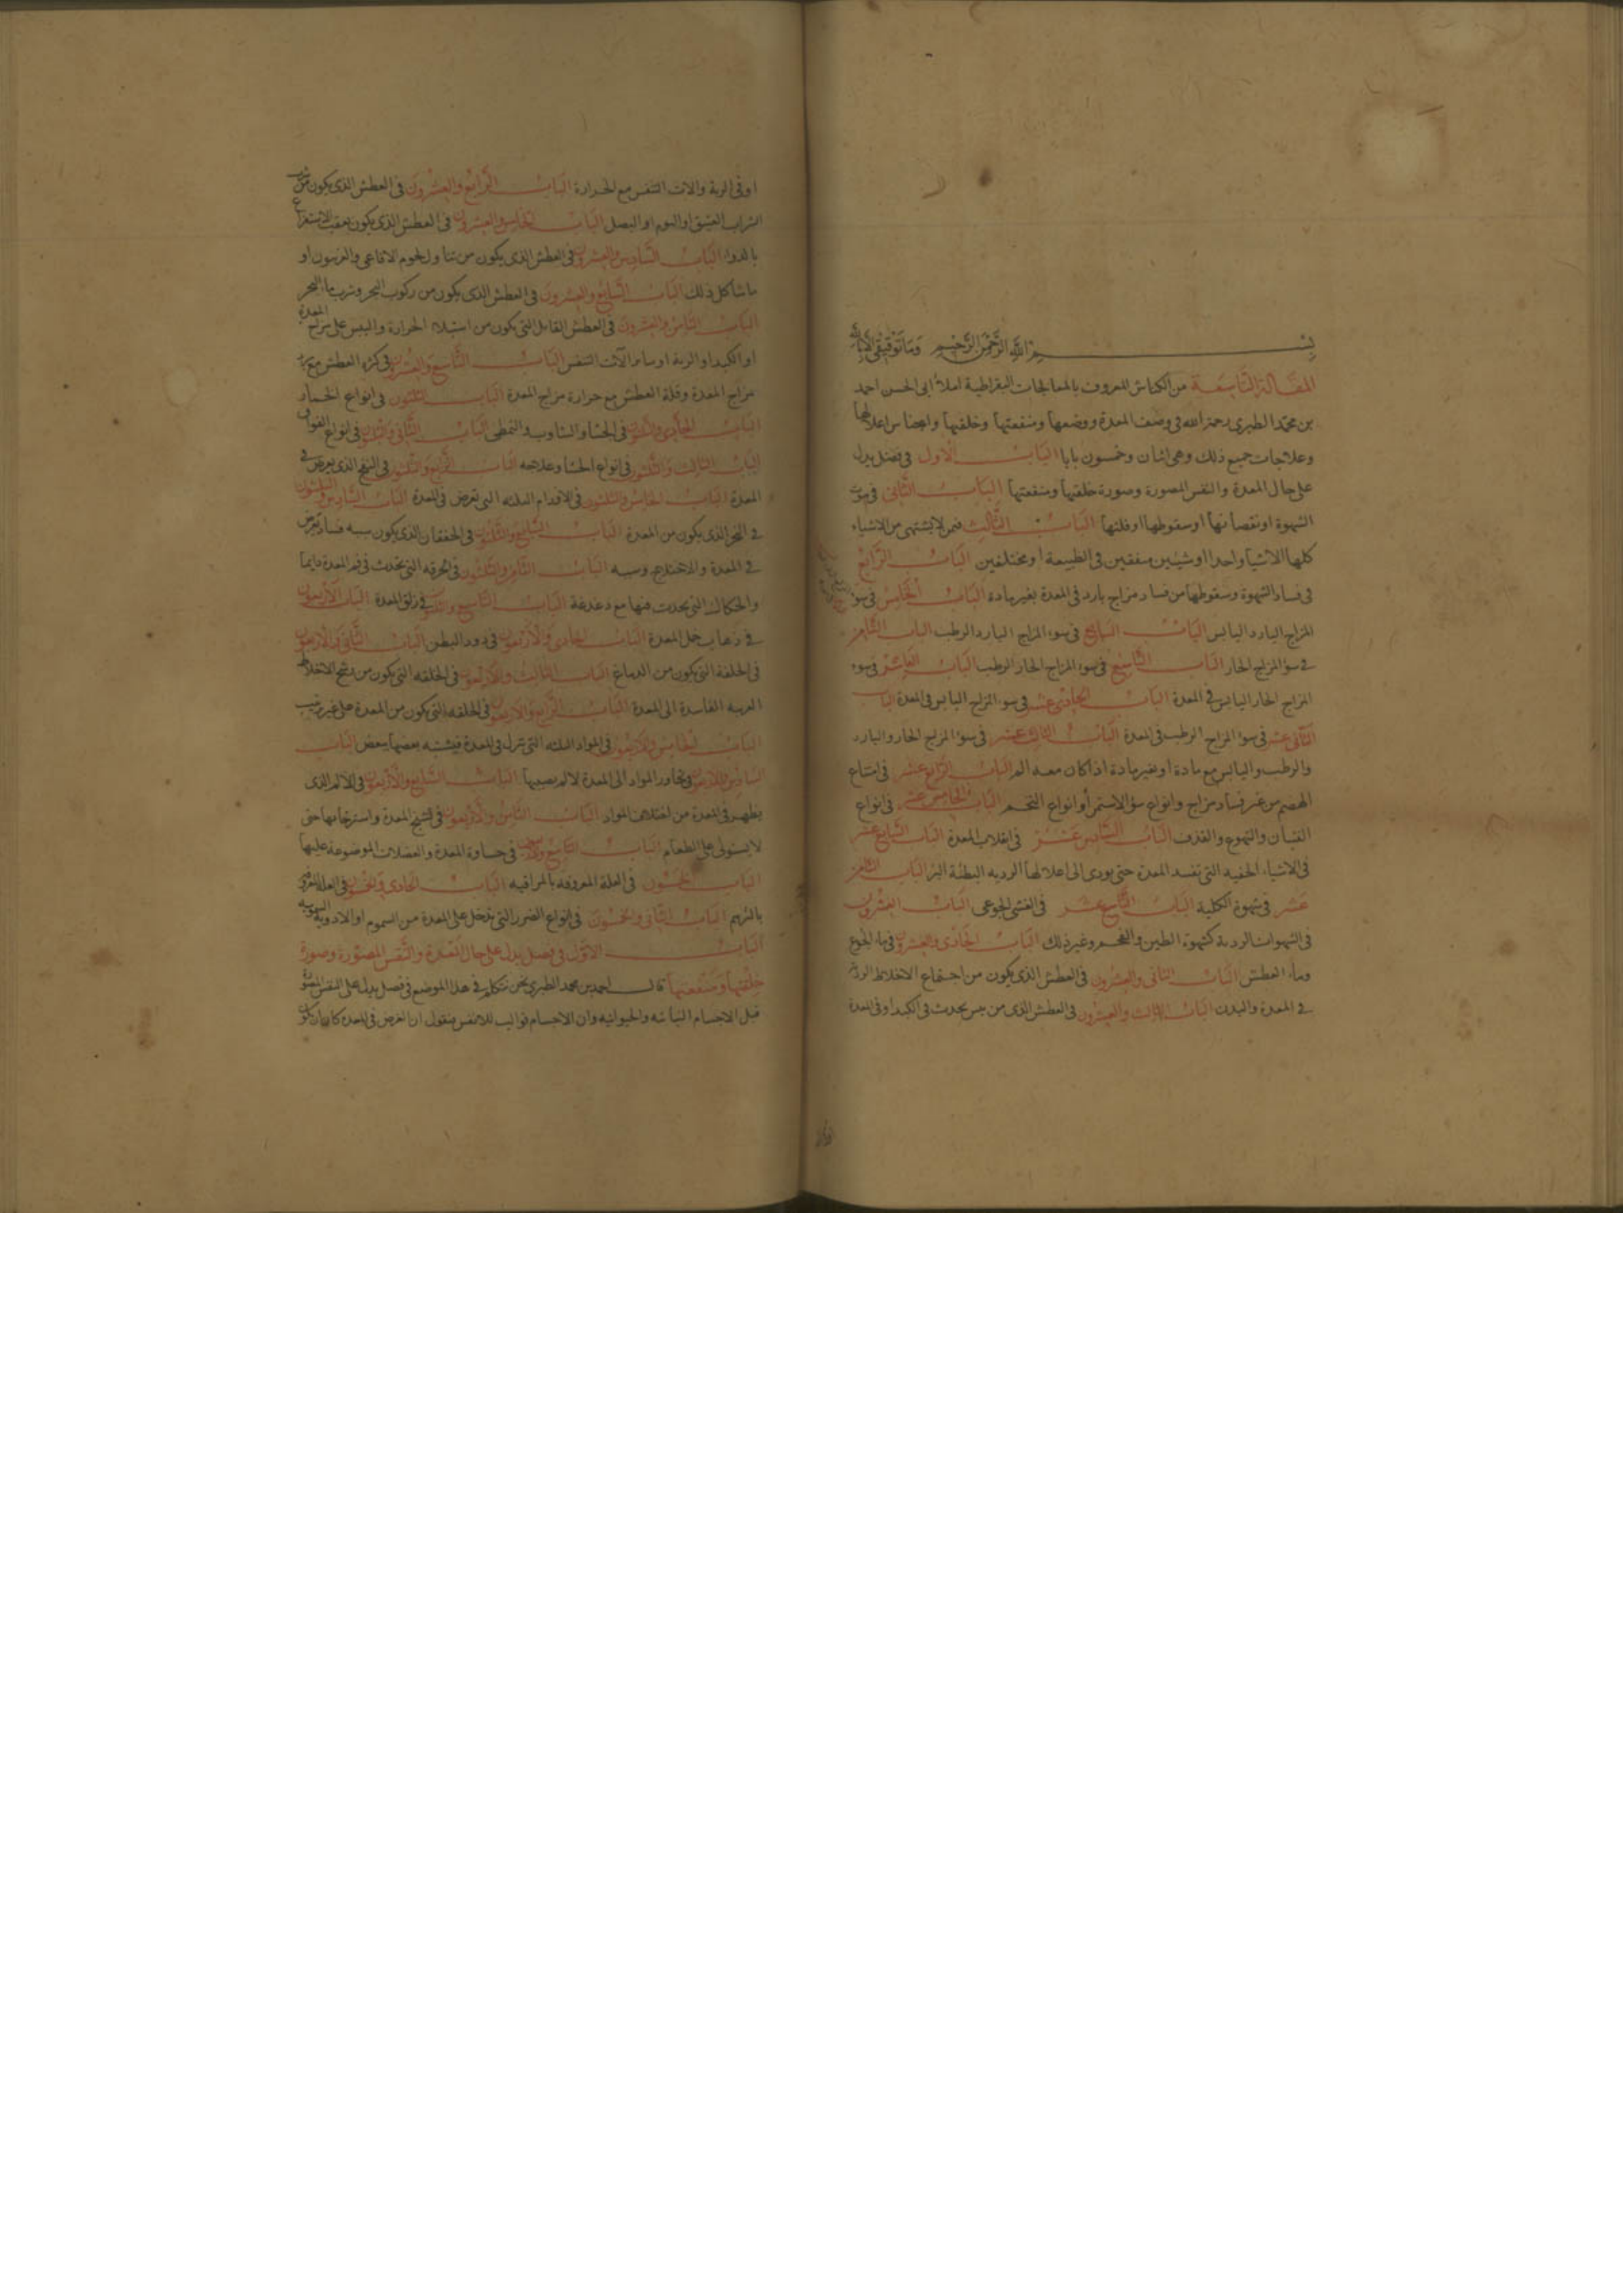 بسم الله الرحمن الرحيم وما توفيقي الا بالله
المقالة التاسعة من الكناش المعروف بالمعالجات البقراطية املأ ابى الحسن احمد
بن محمد الطبرى رحمة الله فى وصف المعدة ووضعها ومنفعتها وخلقتها واجناس اعلالها
وعلاجات جميع ذلك وهى اثنان وخمسون بابا الباب الاول فى فصل يدل
على حال المعدة والنفس المصورة وصورة خلقتها ومنفعتها الباب الثانى فى
الشهوة او نقصانها او سقوطها او قلتها الباب الثالث فيمن لا يشتهى من الاشياء
كلها الا شيا واحدا او شيئين متفقين فى الطبيعة او مختلفين الباب الرابع
فى فساد الشهوة وسقوطها من فساد مزاج بارد فى المعدة بغير مادة الباب الخامس فى سؤ
المزاج البارد اليابس الباب السابع فى سوء المزاج البارد الرطب الباب الثامن
فى سؤ المزاج الحار الباب التاسع فى سوء المزاج الحار الرطب الباب العاشر فى سوء
المزاج الحار اليابس فى المعدة الباب الحادى عشر فى سوء المزاج اليابس فى المعدة الباب
الثانى عشر فى سوء المزاج الرطب فى المعدة الباب الثالث عشر فى سؤ المزاج الحار والبارد
والرطب واليابس مع مادة او بغير مادة اذا كان معه الم الباب الرابع عشر فى امتناع
الهضم من غير فساد مزاج وانواع سؤ الاستمرأ وانواع التخم الباب الخامس عشر فى انواع
الغثيان والتهوع والقذف الباب السادس عشر فى انقلاب المعدة الباب السابع عشر
فى الاشياء الخفيه التى تفسد المعدة حتى يودى الى اعلالها الرديه البطئة البر الباب الثامن
عشر فى شهوة الكلبية الباب التاسع عشر فى الغشى الجوعى الباب العشرون
فى الشهوات الردية كشهوة الطين والفحم وغير ذلك الباب الحادى والعشرون فى الجوع
وماء العطش الباب الثانى والعشرون فى العطش الذى يكون من اجتماع الاخلاط الردية
فى المعدة والبدن الباب الثالث والعشرون فى العطش الذى من حر يحدث فى الكبد او فى المعدة
او فى الرية والات التنفس مع الحرارة الباب الرابع والعشرون فى العطش الذى يكون من شرب
الشراب العتيق او الثوم او البصل الباب الخامس والعشرون فى العطش الذى يكون بعقب الاستفراغ
بالدواء الباب السادس والعشرون فى العطش الذى يكون من تناول لحوم الافاعى والفرسون او
ما شاكل ذلك الباب السابع والعشرون فى العطش الذى يكون من ركوب البحر وشرب ماء البحر
الباب الثامن والعشرون فى العطش القاتل التى يكون من استيلاء الحرارة واليبس على مزاج المعدة
او الكبد او الرية او سائر الآلات التنفس الباب التاسع والعشرون فى كثرة العطش مع برد
مزاج المعدة وقلة العطش مع حرارة مزاج المعدة الباب الثلثون فى انواع الخمار
الباب الحادى والثلثون فى الجشا والتثاوب والتمطى الباب الثانى والثلثون فى انواع الفواق
الباب الثالث والثلثون فى انواع الجشا وعلاجه الباب الرابع والثلثون فى النفخ الذى يعرض فى
المعدة الباب الخامس والثلثون فى الاقدام التى تعرض فى المعدة الباب السادس والثلثون
فى البخر الذى يكون من المعدة الباب السابع والثلثون فى الخفقان الذى يكون سببه فساد يعرض
فى المعدة والاختلاج وسببه الباب الثامن والثلثون فى الحرقة التى تحدث فى فم المعدة دايما
والحكاك التى يحدث فيها مع دغدغة الباب التاسع وثلثون فى زلق المعدة الباب الاربعون
فى ذهاب خمل المعدة الباب الحادى والاربعون فى دود البطن الباب الثانى والاربعون
فى الخلفة التى يكون من الدماغ الباب الثالث والاربعون فى الخلفه التى يكون من رشح الاخلاط
الفاسدة الى المعدة الباب الرابع والاربعون فى الخلفه التى يكون من المعدة على غير ترتيب
الباب الخامس والاربعون فى المواد التى تنزل فى المعدة فيشتبه بعضها ببعض الباب
السادس والاربعون فى تجاور المواد الى المعدة لالم يصيبها الباب السابع والاربعون فى الالم الذى
يظهر فى المعدة من اختلاف المواد الباب الثامن والاربعون فى تشنج المعدة واسترخائها حتى
لا يستولى على الطعام الباب التاسع والاربعون فى جساوة المعدة والعضلات الموضوعة عليها
الباب الخمسون فى العلة المعروفه بالمراقيه الباب الحادى والخمسون فى العلة المعروفة
بالنهم الباب الثانى والخمسون فى انواع الضرر التى يدخل على المعدة من السموم او الادوية
الباب الاول فى فصل يدل على حال المعدة والنفس المصورة وصورة
خلقتها ومنفعتها قال احمد بن محمد الطبرى نحن نتكلم فى هذا الموضع فى فصل يدل على النفس المصورة
قبل الاجسام النباتيه والحيوانيه وان الاجسام قوالب للانفس فنقول ان الغرض فى المعدة كان ان يكون